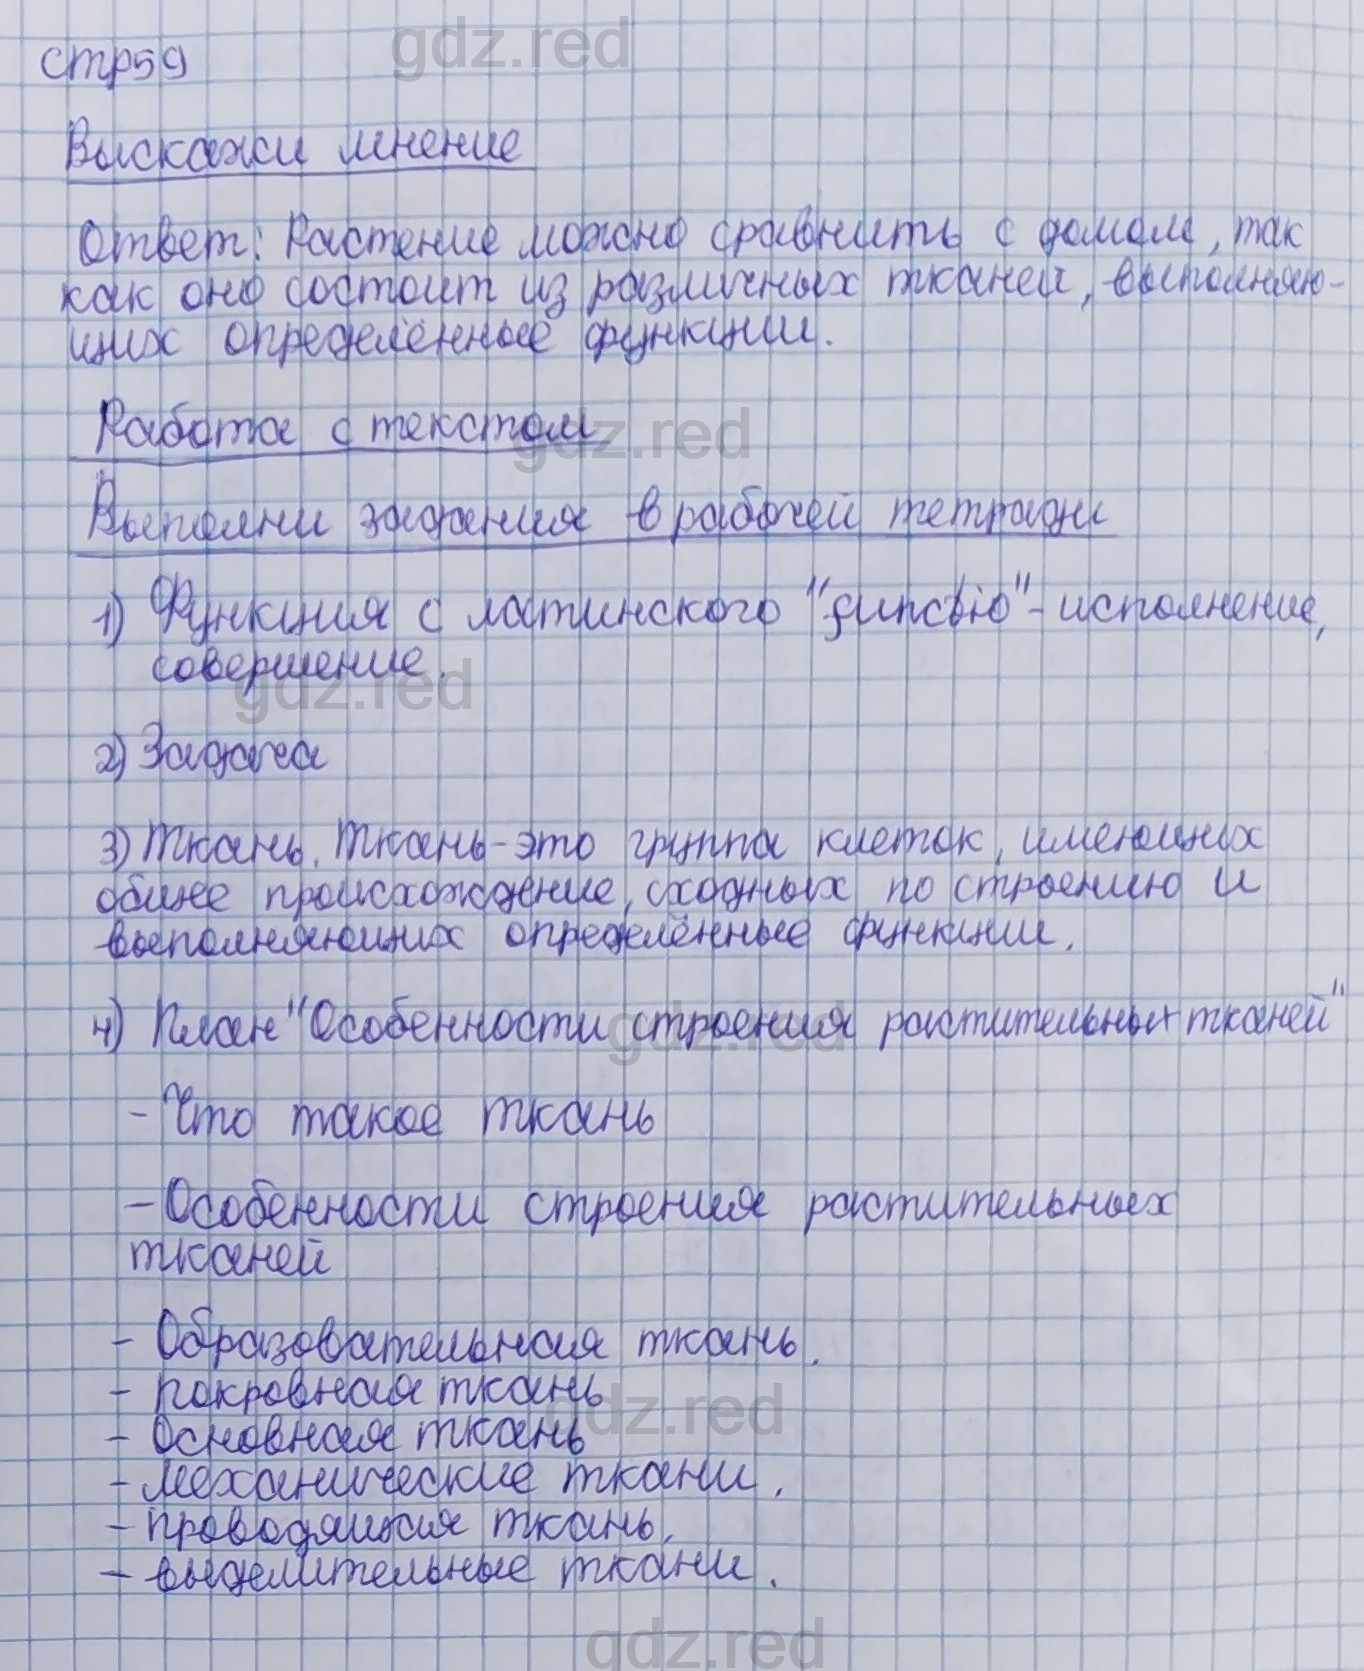 gdz.red
стр59
Выскажи мнение
Ответ: Растение можно сравнить с домом, так
как оно состоит из различных тканей, выполняю-
щих определённые функции.
Работа с текстом
gdz.red
Выполни задания в рабочей тетради
1) Функция с латинского "functio" - исполнение,
совершение.
gdz.red
2) Задача
3) Ткань. Ткань - это группа клеток, имеющих
общее происхождение, сходных по строению и
выполняющих определённые функции.
4) План "Особенности строения растительных тканей"
gdz.red
- Что такое ткань
- Особенности строения растительных
тканей
- Образовательная ткань.
- покровная ткань
gdz.red
- Основная ткань
- механические ткани.
- проводящая ткань.
- выделительные ткани.
gdz.red